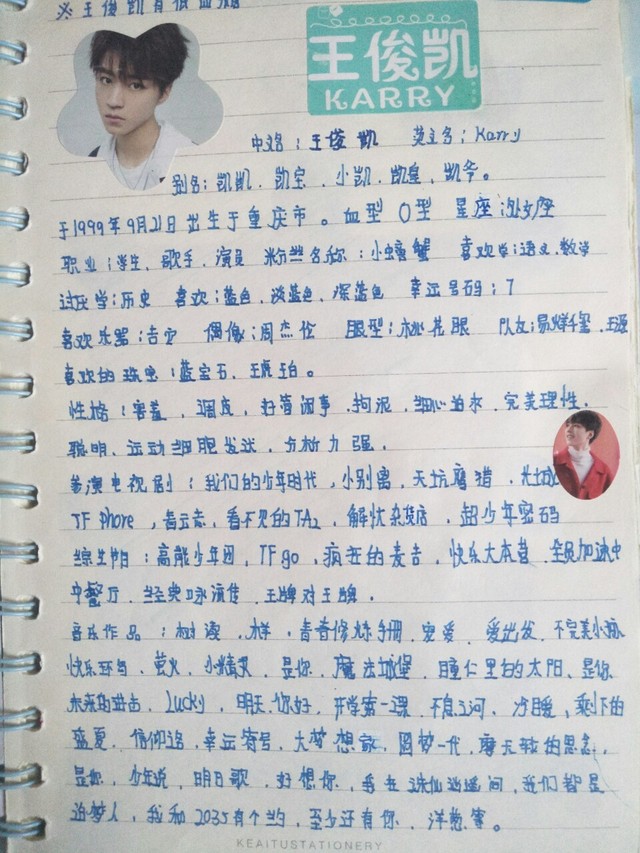 王俊凯有低血糖
王俊凯
KARRY
中文名：王俊凯 英文名：Karry
别名：凯凯、凯宝、小凯、凯皇、凯爷。
于1999年9月21日出生于重庆市。血型 O型 星座：处女座
职业：学生、歌手、演员 粉丝名称：小螃蟹 喜欢学：语文、数学
讨厌学：历史 喜欢：蓝色、淡蓝色、深蓝色 幸运号码：7
喜欢乐器：吉它 偶像：周杰伦 眼型：桃花眼 队友：易烊千玺、王源
喜欢的珠宝：蓝宝石、琥珀。
性格：害羞、调皮、好管闲事、拘泥、细心、完美理性、
聪明、运动细胞发达、分析力强。
参演电视剧：我们的少年时代，小别离、天坑鹰猎、长城
TF Phone，青云志，看不见的TA2，解忧杂货店，超少年密码
综艺节目：高能少年团，TF go、疯狂的麦吉、快乐大本营、全员加速中
中餐厅、经典咏流传、王牌对王牌。
音乐作品：树读、样、青春修炼手册、宠爱、爱出发、不完美小孩
快乐环岛、萤火、小精灵、是你、魔法城堡、瞳仁里的太阳、是你
未来的进击、Lucky、明天你好、开学第一课、不息之河、冷暖、剩下的
盛夏、信仰之名、幸运符号、大梦想家、圆梦一代、摩天轮的思念、
是你、少年说、明日歌、好想你、我在诛仙逍遥涧、我们都是
追梦人、我和2035有个约、至少还有你、洋葱等。
KEAITUSTATIONERY